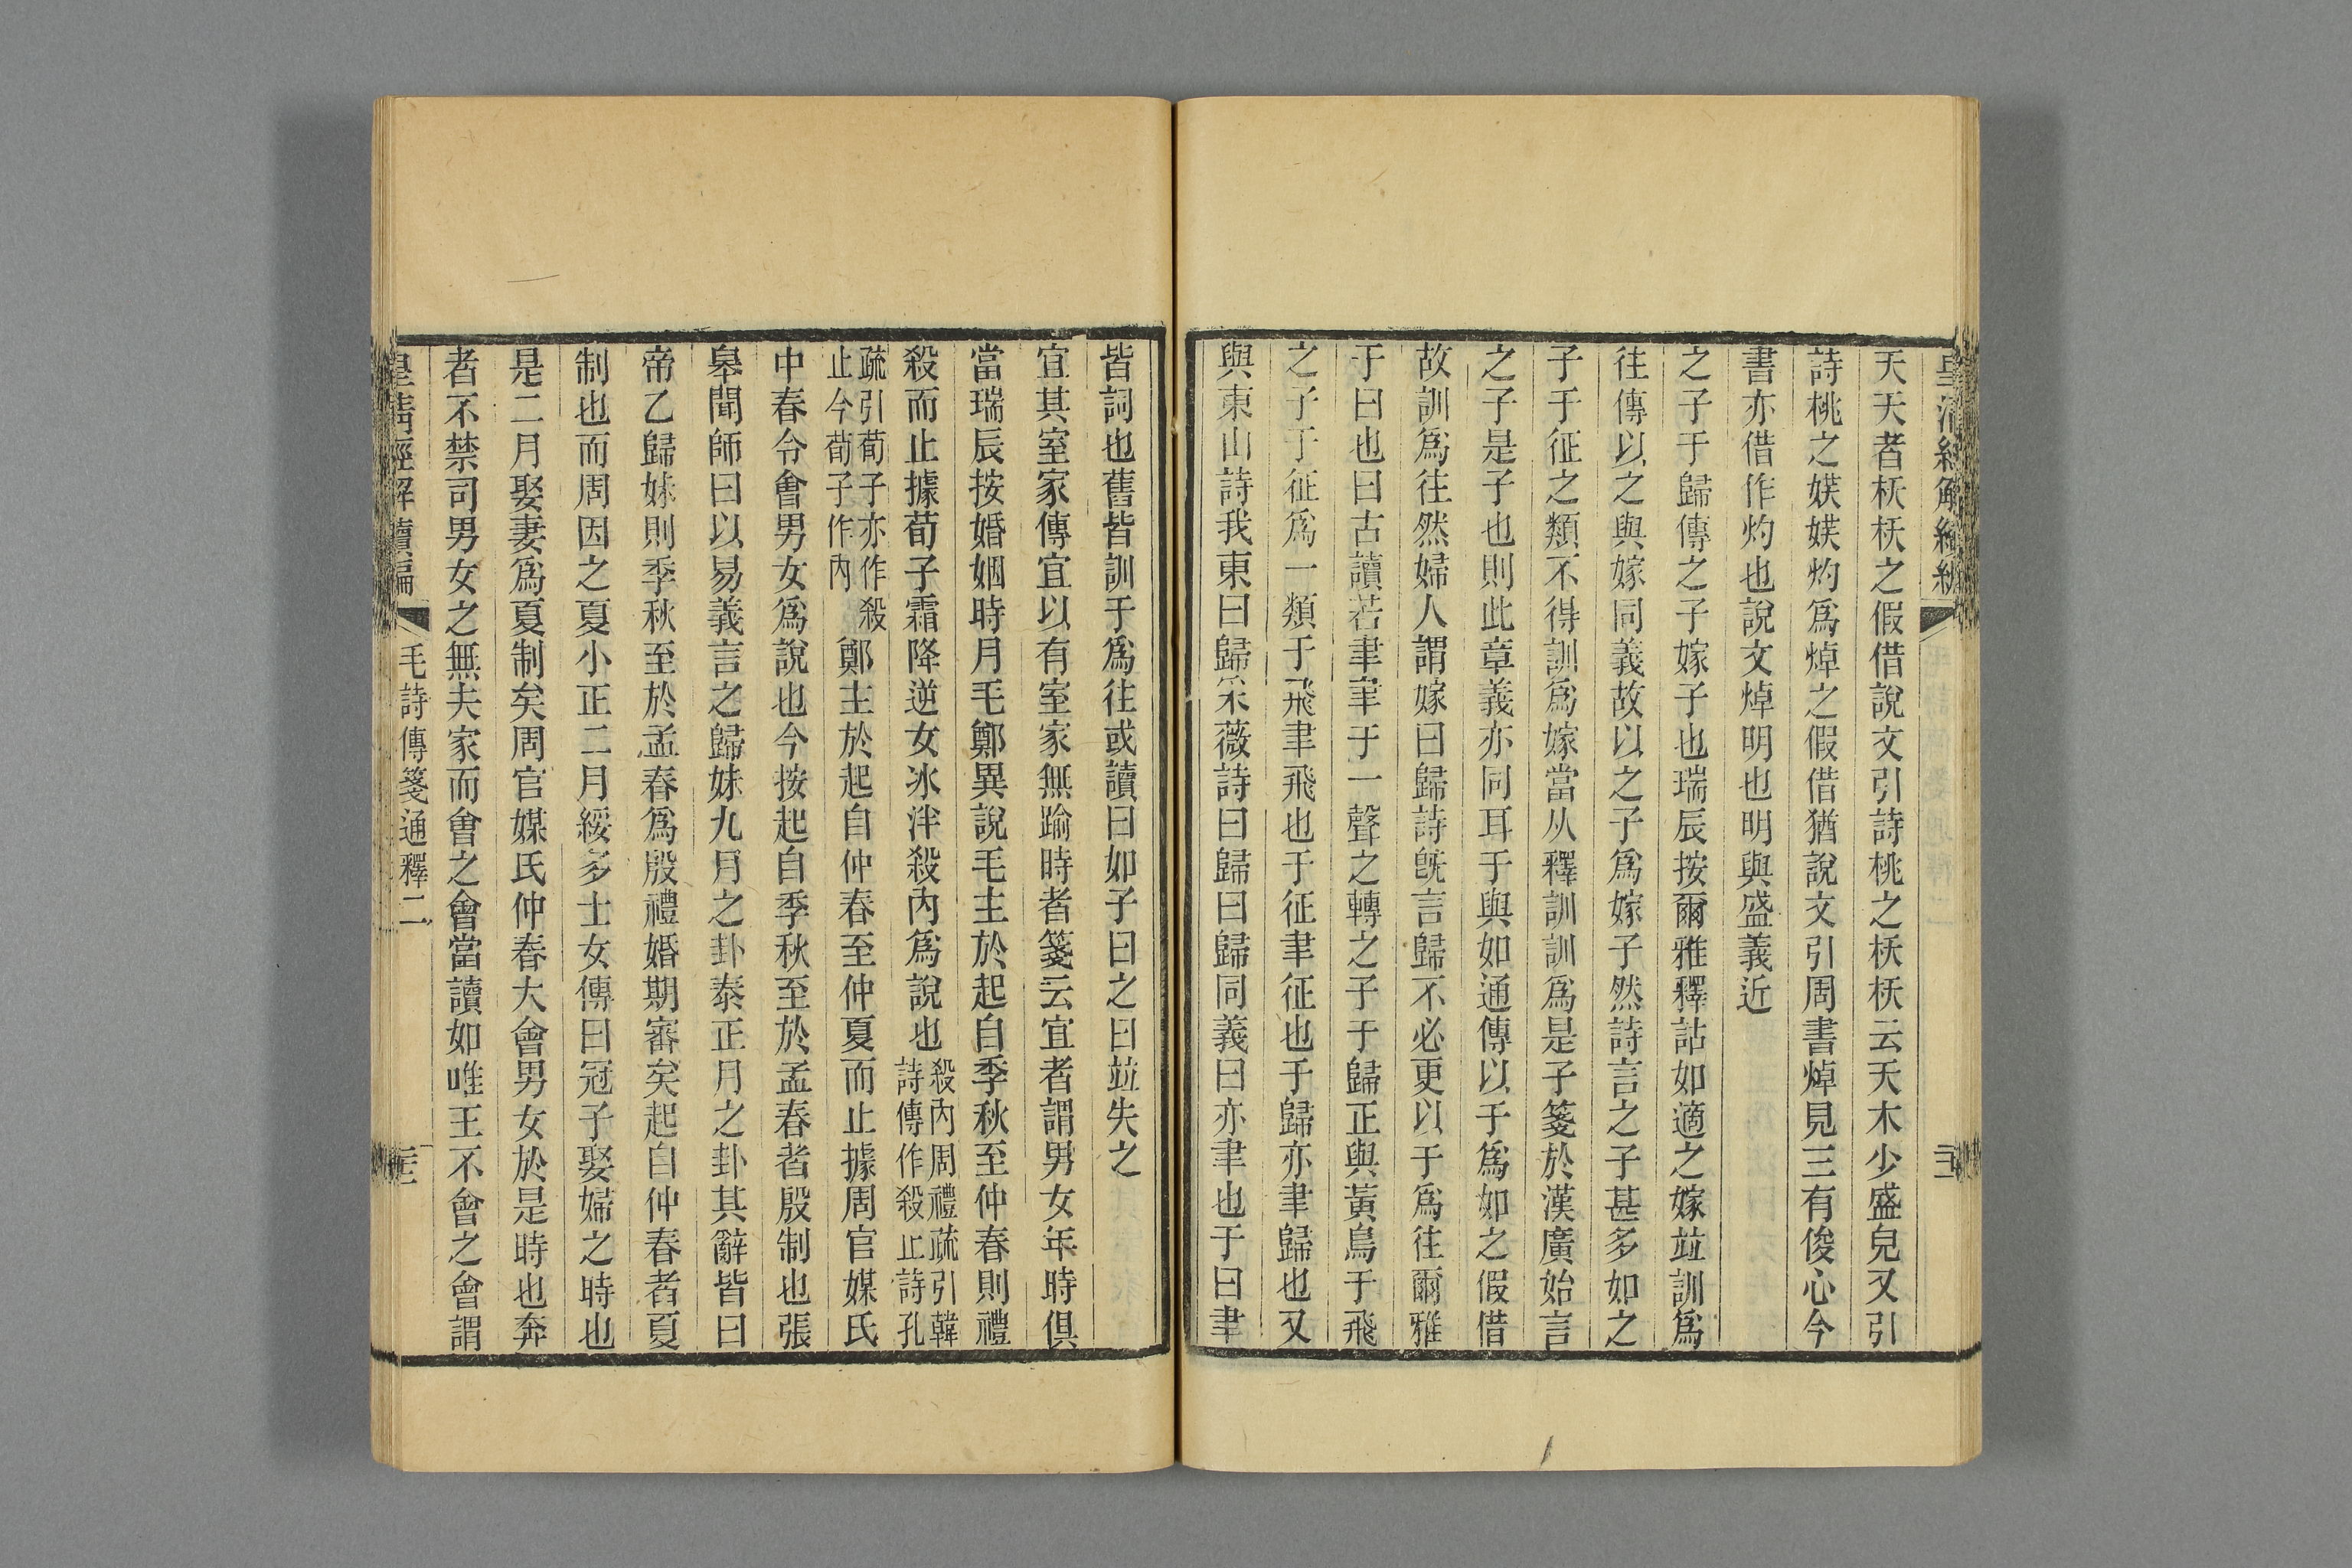 夭夭者枖枖之假借說文引詩桃之枖枖云夭木少盛皃又引
詩桃之媄媄灼爲焯之假借猶說文引周書焯見三有俊心今
書亦借作灼也說文焯明也明與盛義近
之子于歸傳之子嫁子也瑞辰按爾雅釋詁如適之嫁竝訓爲
往傳以之與嫁同義故以之子爲嫁子然詩言之子甚多如之
子于征之類不得訓爲嫁當从釋訓訓爲是子箋於漢廣始言
之子是子也則此章義亦同耳于與如通傳以于爲如之假借
故訓爲往然婦人謂嫁曰歸詩旣言歸不必更以于爲往爾雅
于曰也曰古讀若聿聿于一聲之轉之子于歸正與黃鳥于飛
之子于征爲一類于飛聿飛也于征聿征也于歸亦聿歸也又
與東山詩我東曰歸采薇詩曰歸曰歸同義曰亦聿也于曰聿
皆詞也舊皆訓于爲往或讀曰如子曰之曰竝失之
宜其室家傳宜以有室家無踰時者箋云宜者謂男女年時俱
當瑞辰按婚姻時月毛鄭異說毛主於起自季秋至仲春則禮
殺而止據荀子霜降逆女冰泮殺內爲說也殺內周禮疏引韓詩傳作殺止詩孔
疏引荀子亦作殺止今荀子作內鄭主於起自仲春至仲夏而止據周官媒氏
中春令會男女爲說也今按起自季秋至於孟春者殷制也張
皋聞師曰以易義言之歸妹九月之卦泰正月之卦其辭皆曰
帝乙歸妹則季秋至於孟春爲殷禮婚期審矣起自仲春者夏
制也而周因之夏小正二月綏多士女傳曰冠子娶婦之時也
是二月娶妻爲夏制矣周官媒氏仲春大會男女於是時也奔
者不禁司男女之無夫家而會之會當讀如唯王不會之會謂
皇淸經解續編 毛詩傳箋通釋二